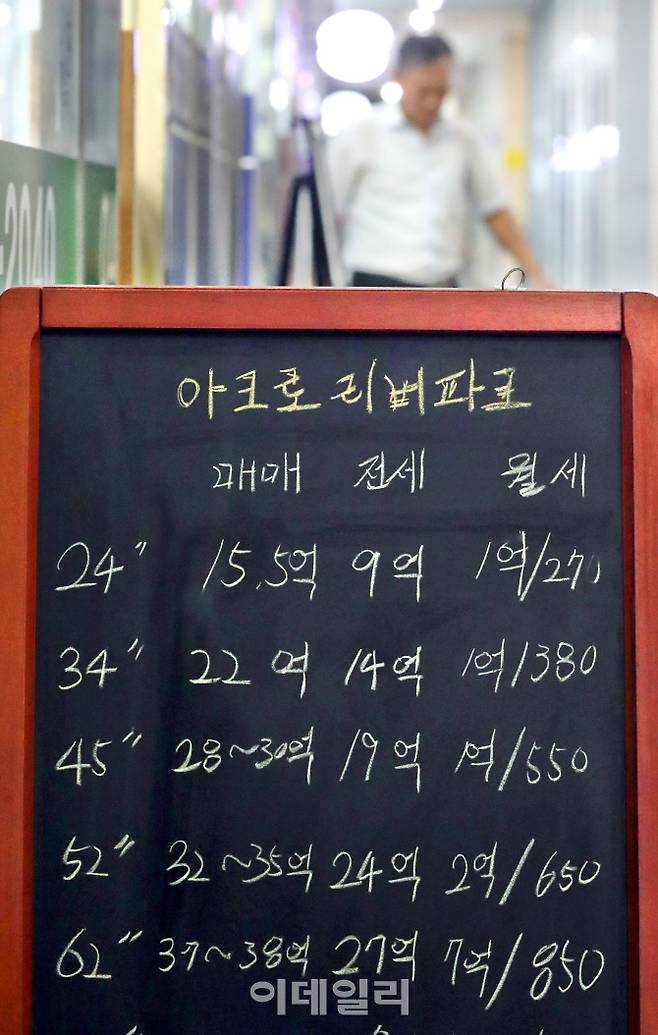 2040
아크로 리버파크
매매 전세 월세
24" 15.5억 9억 1억/270
34" 22억 14억 1억/380
45" 28~30억 19억 1억/550
52" 32~35억 24억 2억/650
62" 37~38억 27억 7억/850
이데일리